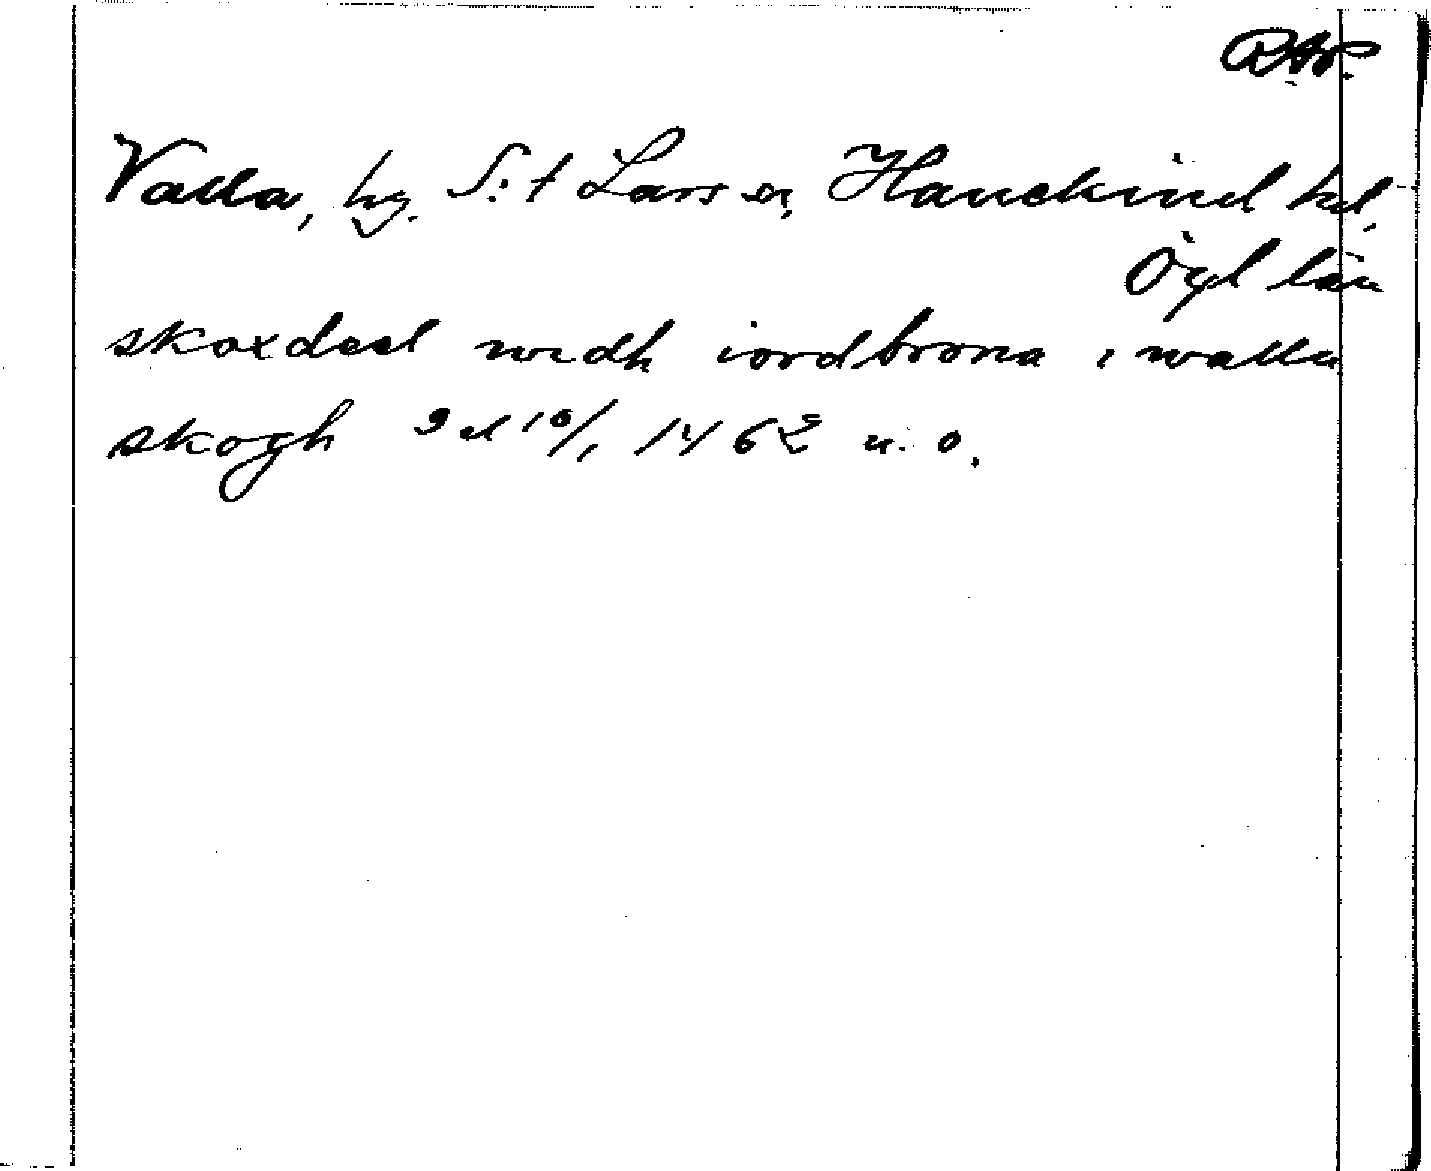 RAP.
Valla, hg. S:t Lars sn, Hanekind hd,
Ögl län
skoxdeel medh iordbrona i walla
skogh 9 el 10/1 1462 u. o.